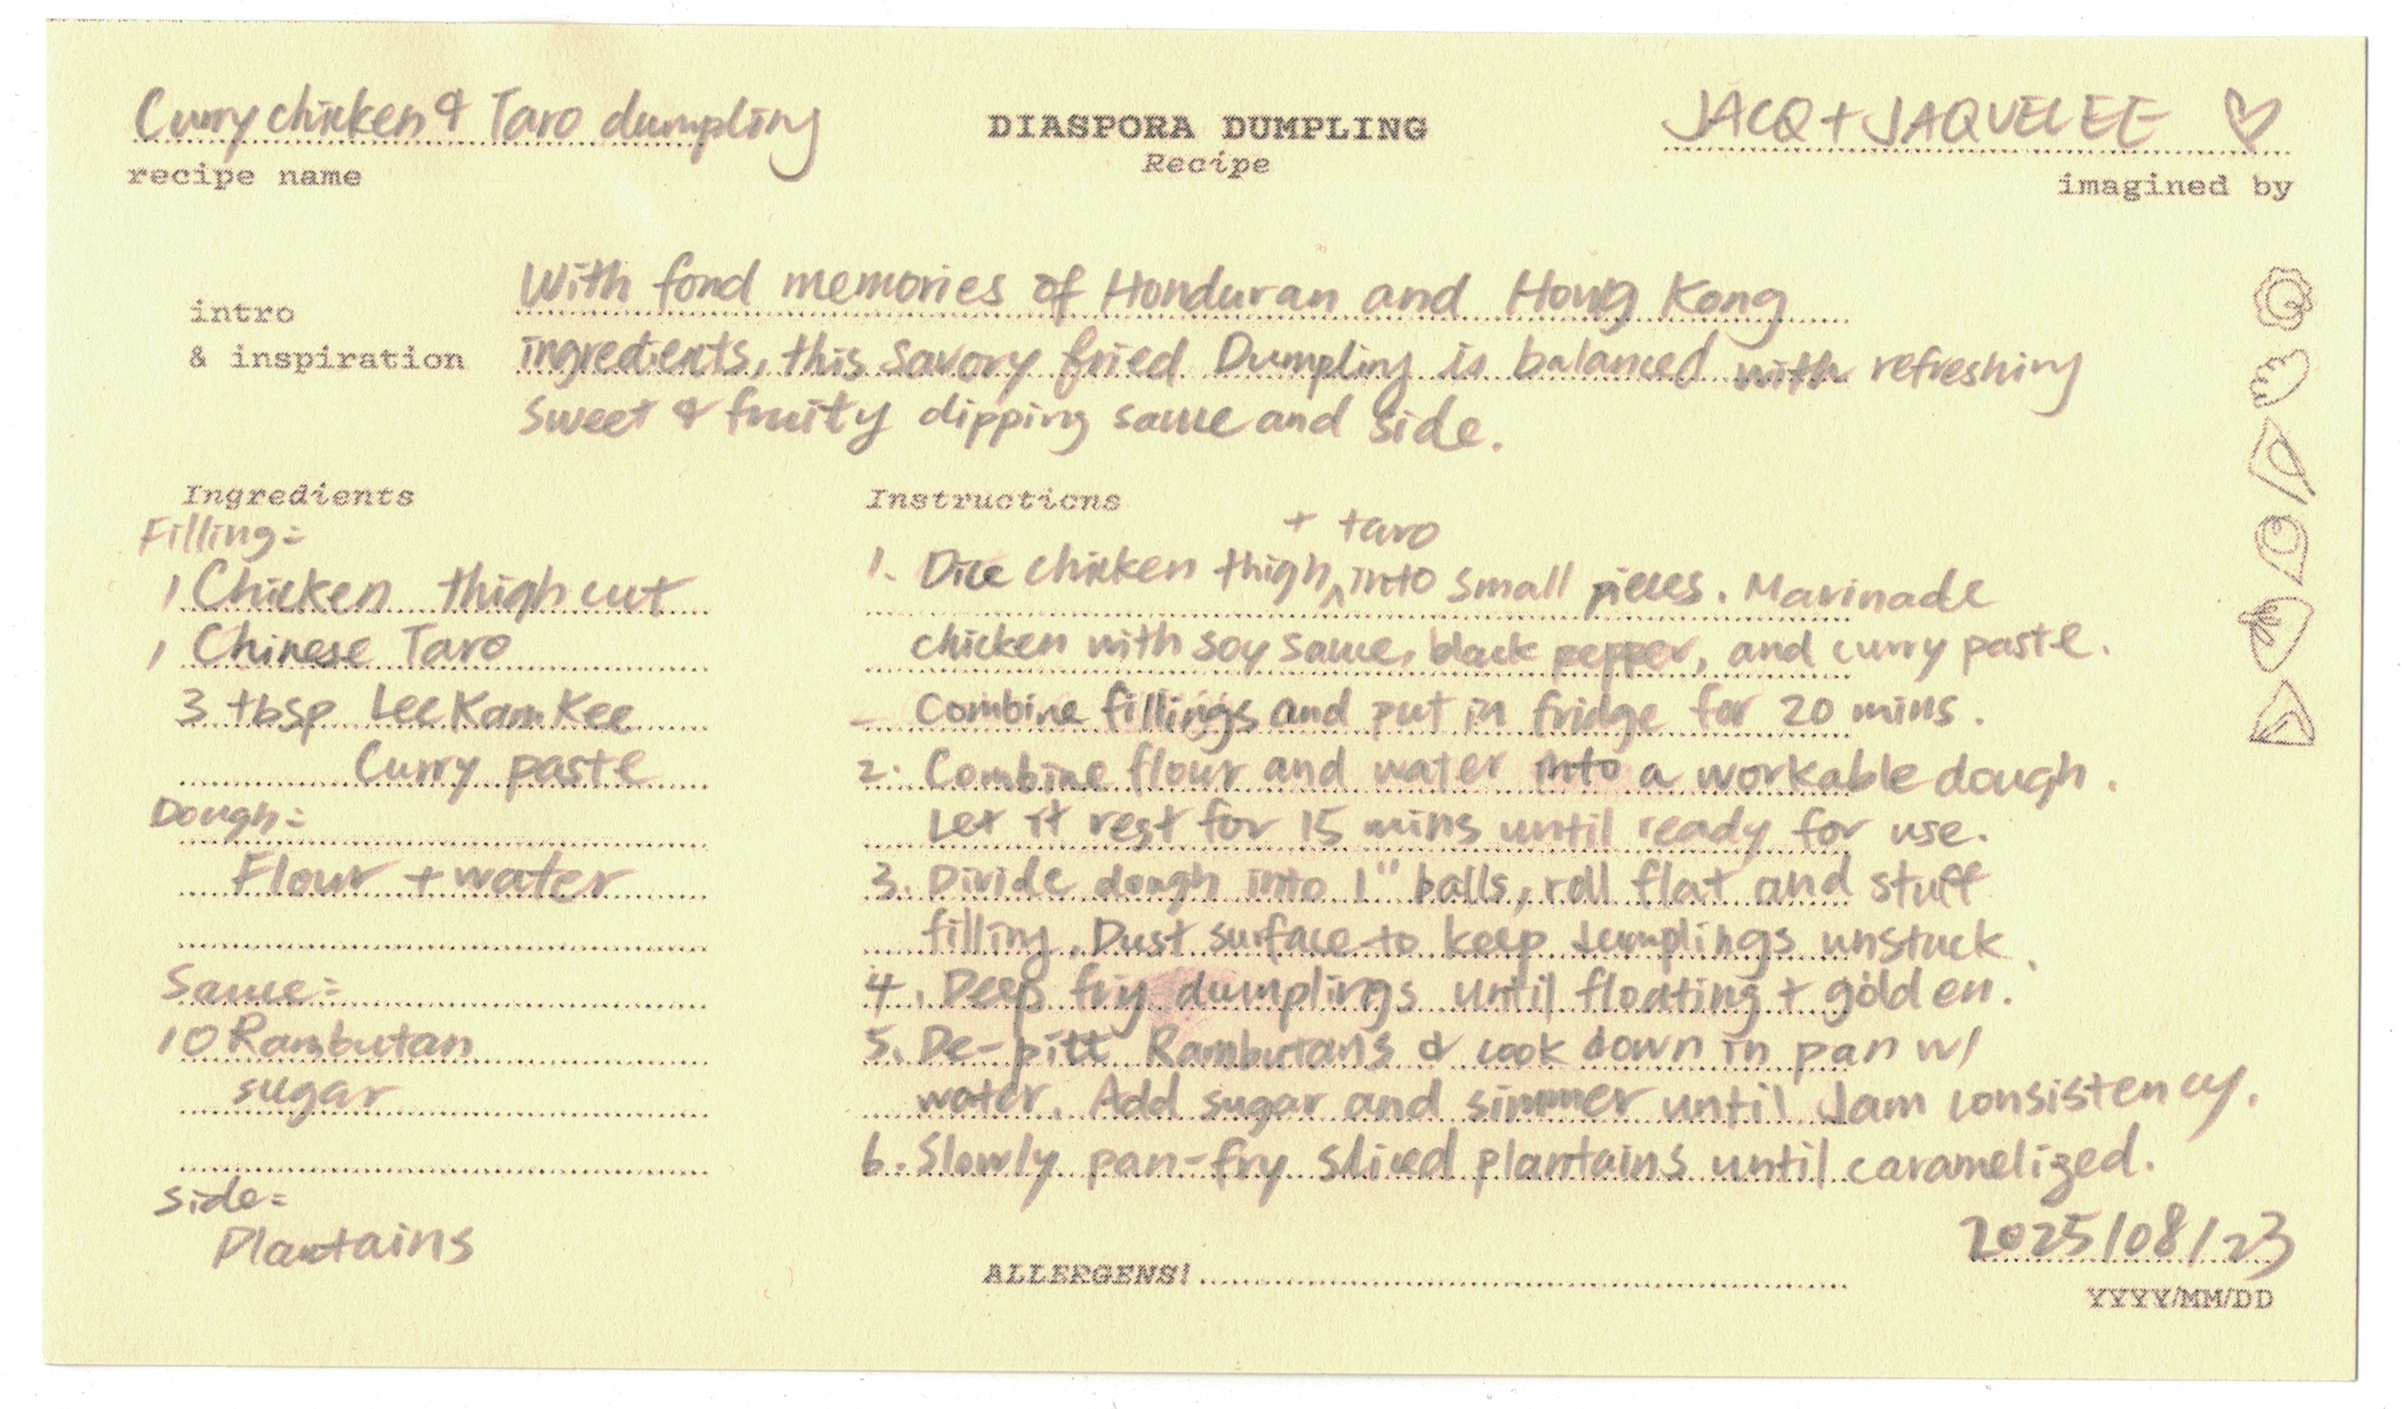 Curry chicken & Taro dumpling
recipe name
DIASPORA DUMPLING
Recipe
JACQ + JAQUELEE ♡
imagined by
intro
& inspiration
With fond memories of Honduran and Hong Kong
ingredients, this savory fried Dumpling is balanced with refreshing
sweet & fruity dipping sauce and side.
Ingredients
Filling:
1 Chicken thigh cut
1 Chinese Taro
3 tbsp Lee Kam Kee
Curry paste
Dough:
Flour + water
Sauce:
10 Rambutan
sugar
side:
Plantains
Instructions
+ taro
1. Dice chicken thigh ^ into small pieces. Marinade
chicken with soy sauce, black pepper, and curry paste.
- Combine fillings and put in fridge for 20 mins.
2. Combine flour and water into a workable dough.
Let it rest for 15 mins until ready for use.
3. Divide dough into 1" balls, roll flat and stuff
filling. Dust surface to keep dumplings unstuck.
4. Deep fry dumplings until floating + golden.
5. De-pitt Rambutans & cook down in pan w/
water. Add sugar and simmer until Jam consistency.
6. Slowly pan-fry sliced plantains until caramelized.
ALLERGENS!
2025/08/23
YYYY/MM/DD